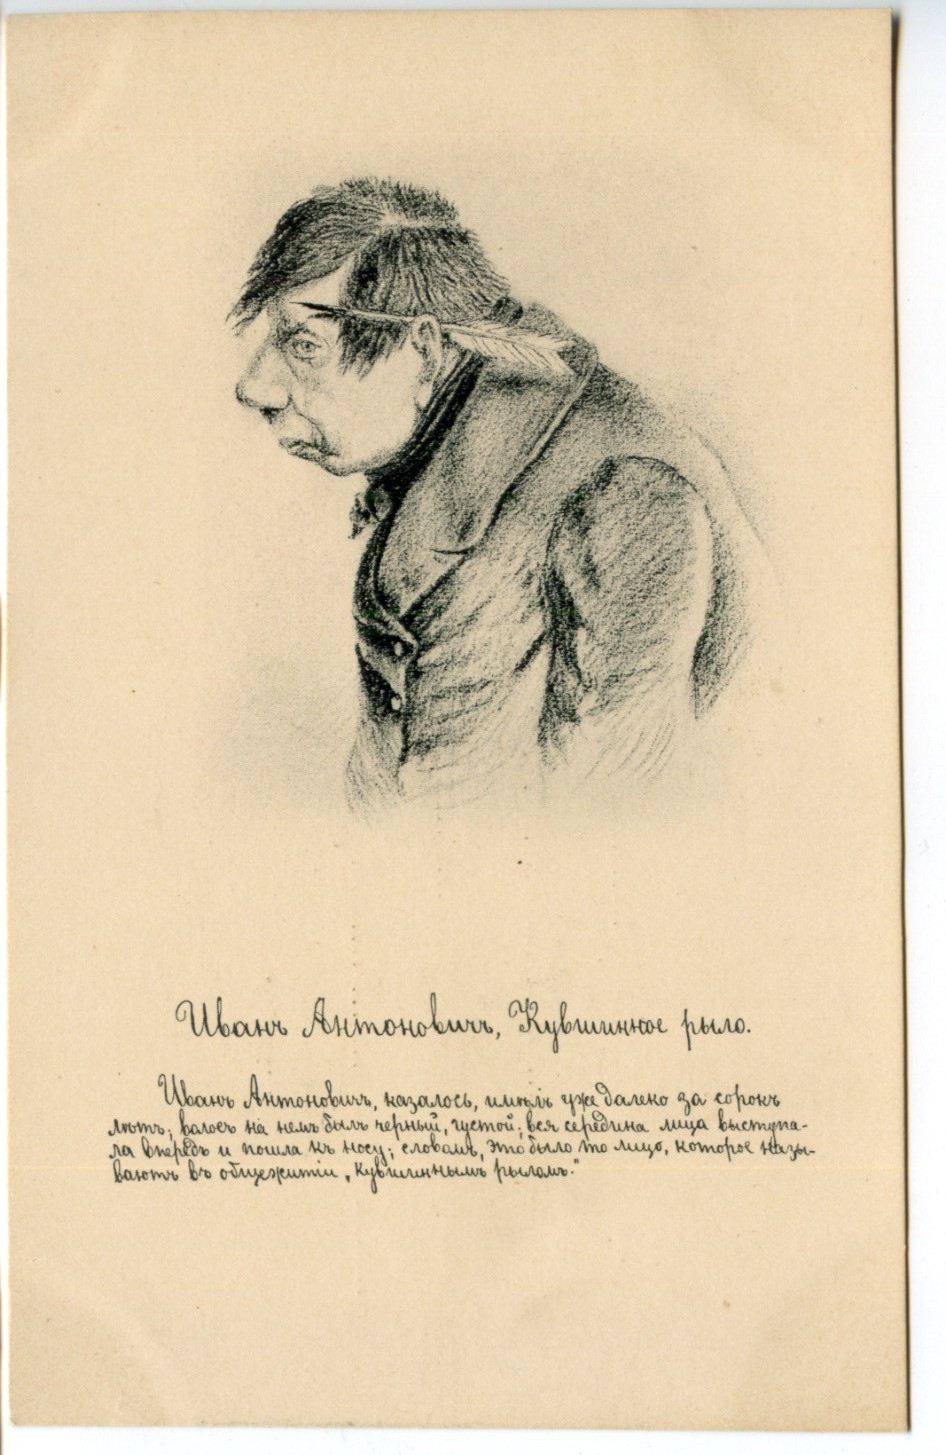 Иванъ Антоновичъ, Кувшинное рыло.
Иванъ Антоновичъ, казалось, имѣлъ уже далеко за сорокъ
лѣтъ; волосъ на немъ былъ черный, густой; вся середина лица выступа-
ла впередъ и пошла къ носу; словомъ, это было то лицо, которое назы-
ваютъ въ общежитіи „кувшиннымъ рыломъ."